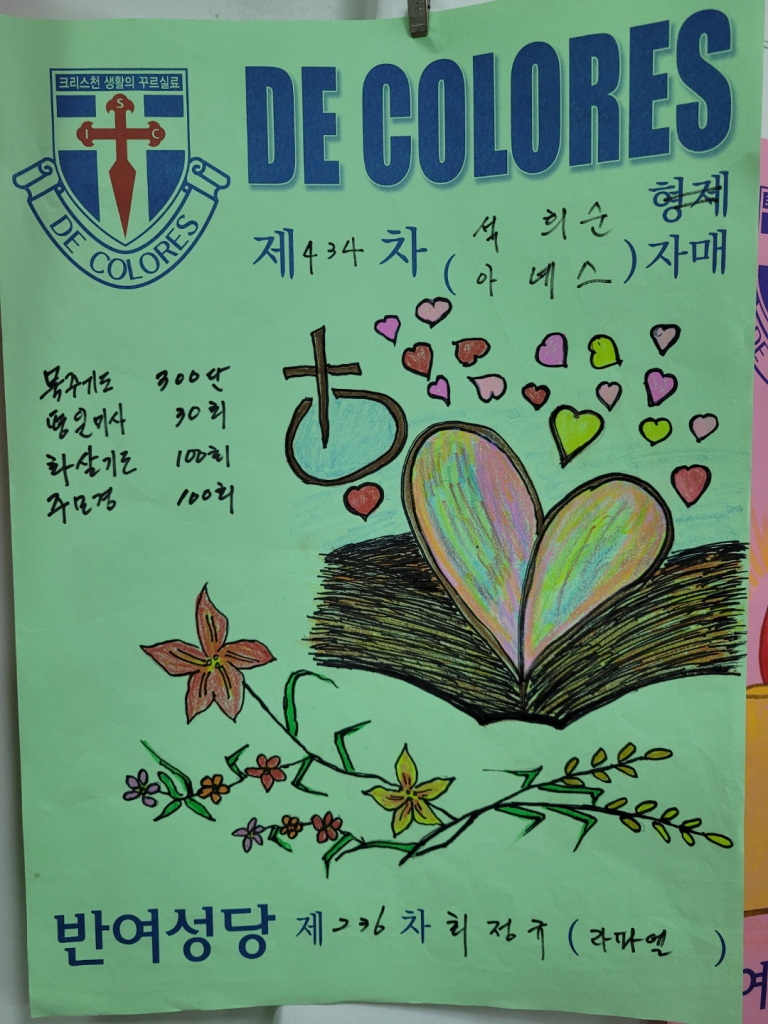 크리스천 생활의 꾸르실료
S
I C
DE COLORES
DE COLORES
형제
석 희순
제434차 (아녜스) 자매
묵주기도 300단
평일미사 30회
화살기도 100회
주모경 100회
반여성당 제236차 최정규 (라파엘)